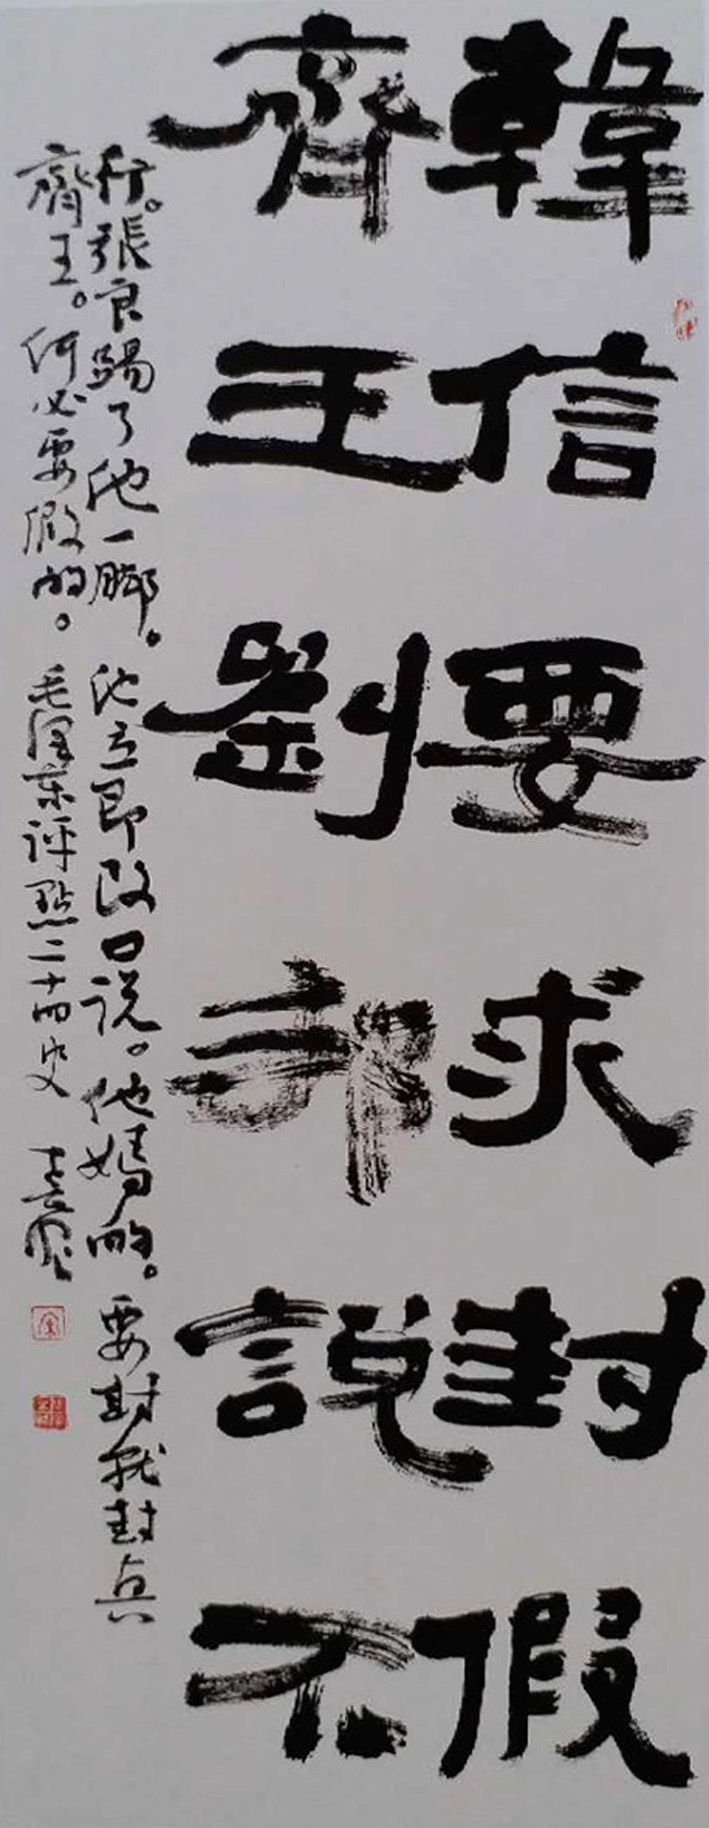 韓信要求封假
齊王劉邦說不
行。張良踢了他一脚。他立即改口说。他媽的。要封就封真
齊王。何必要假的。毛泽东评點二十四史